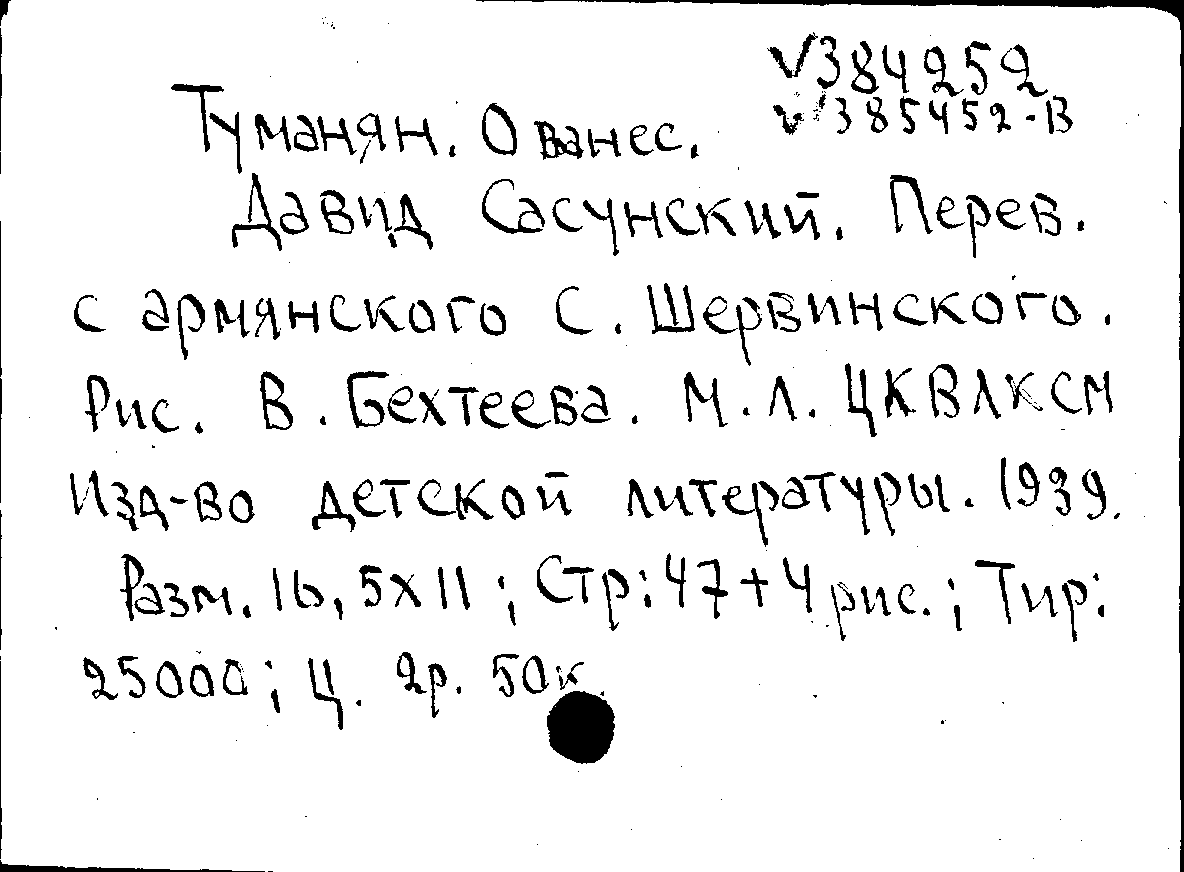 √384252
√385452-В
Туманян. Ованес.
Давид Сасунский. Перев.
с армянского С. Шервинского.
Рис. В. Бехтеева. М. Л. ЦКВЛКСМ
Изд-во детской литературы. 1939.
Разм. 16,5х11; Стр: 47+4 рис.; Тир:
25000; Ц. 2р. 50к.